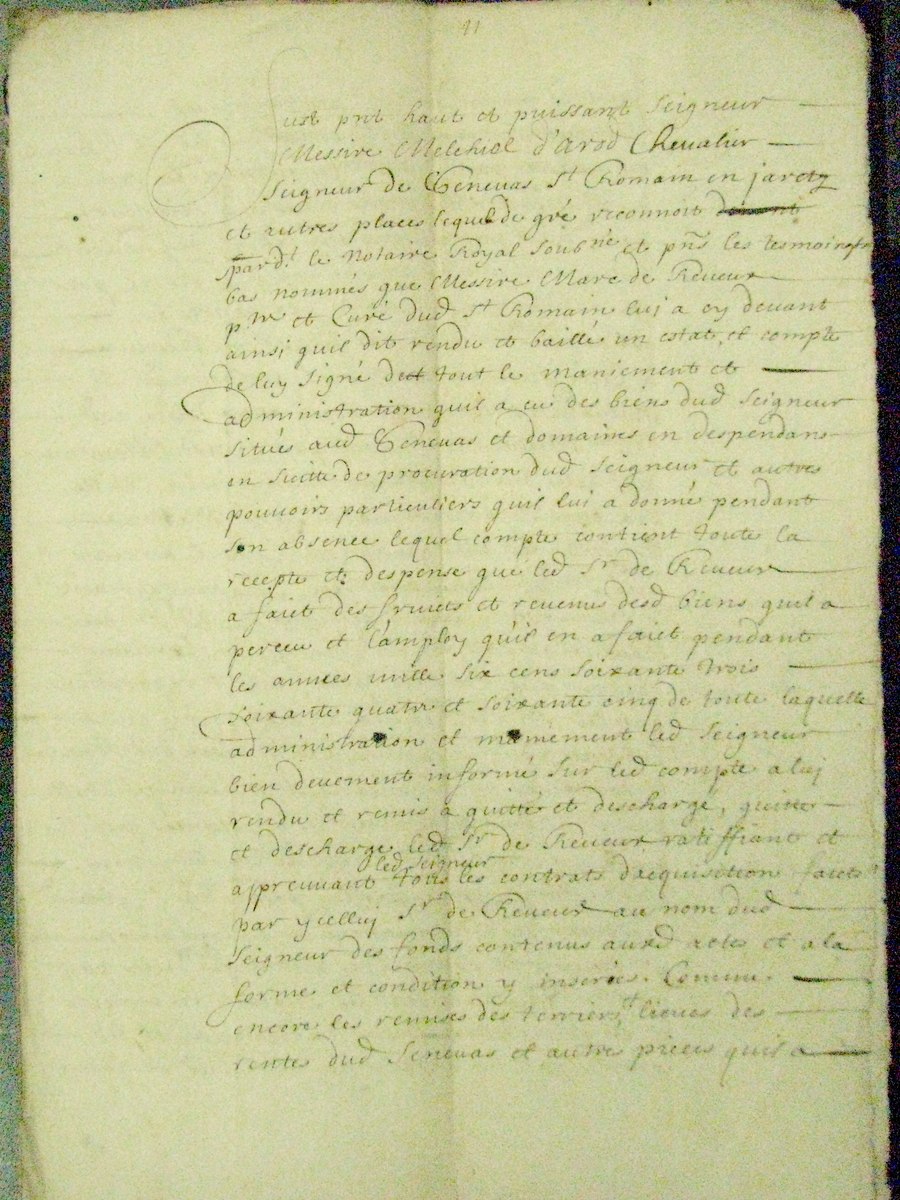 11
fust pnt haut et puissant Seigneur
Messire Melchiol d'Arod Chevalier
Seigneur de Senevas St Romain en jaretz
et autres places lequel de gré reconnoit
pardt le Notaire Royal soubné et pns les tesmoings
bas nommés que Messire Marc de Reveux
ptre et Curé dud St Romain lui a cy devant
ainsi quil dit rendu et baillé un estat et compte
de luy signé de tout le maniement et
administration quil a eu des biens dud Seigneur
situés aud Senevas et domaines en despendans
en suitte de procuration dud Seigneur et autres
pouvoirs particuliers quil lui a donné pendant
son absence lequel compte contient toute la
recepte et despense que led Sr de Reveux
a faict des fruicts et revenus desd biens quil a
perceu et l'amploy qu'il en a faict pendant
les annees mille six cens soixante trois
soixante quatre et soixante cinq de toute laquelle
administration et maniement led Seigneur
bien deuement informé sur led compte a luy
rendu et remis a quitté et deschargé, quitte
et descharge led Sr de Reveux ratiffiant et
appreuvant led Seigneur tous les contrats dacquisition faicts
par ycelluy Sr de Reveux au nom dud
Seigneur des fonds contenus auxd actes et a la
forme et condition y inseries. Comme
encore les remises des terriers, lieves des
rentes dud Senevas et autres pieces quil a